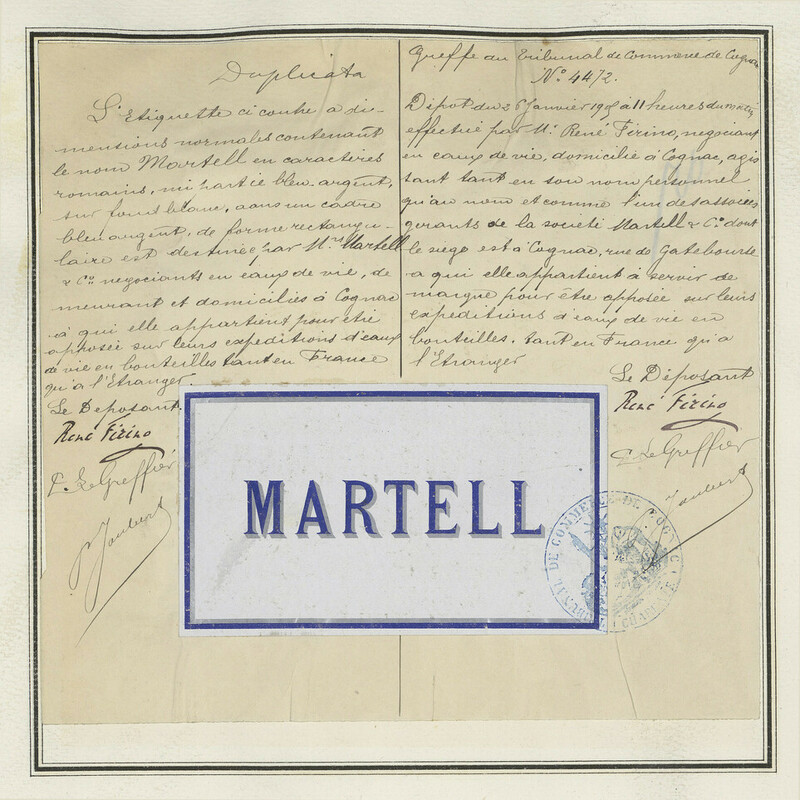 Duplicata
L'Etiquette ci contre a di-
mensions normales contenant
le nom Martell en caractères
romains, mi partie bleu. argent,
sur fond blanc, dans un cadre
bleu argent, de forme rectangu-
laire est destinée par Mrs Martell
& Co négociants en eaux de vie, de
meurant et domiciliés à Cognac
à qui elle appartient pour être
apposée sur leurs expéditions d'eaux
de vie en bouteilles tant en France
qu'a l'Etranger.
Le Déposant.
René Firino
P. Le Greffier
Greffe du Tribunal de Commerce de Cognac
No 4472.
Dépot du 26 Janvier à 11 heures du matin
effectué par Mr René Firino, négociant
en eaux de vie, domicilié à Cognac, agis
sant tant en son nom personnel
qu'au nom et comme l'un des associés
gerants de la societé Martell & Co dont
le siège est à Cognac, rue de Gatebourse
a qui elle appartient à servir de
marque pour être apposée sur leurs
expéditions d'eaux de vie en
bouteilles, tant en France qu'a
l'Etranger
Le Déposant
René Firino
P. Le Greffier
MARTELL
TRIBUNAL DE COMMERCE DE COGNAC CHARENTE